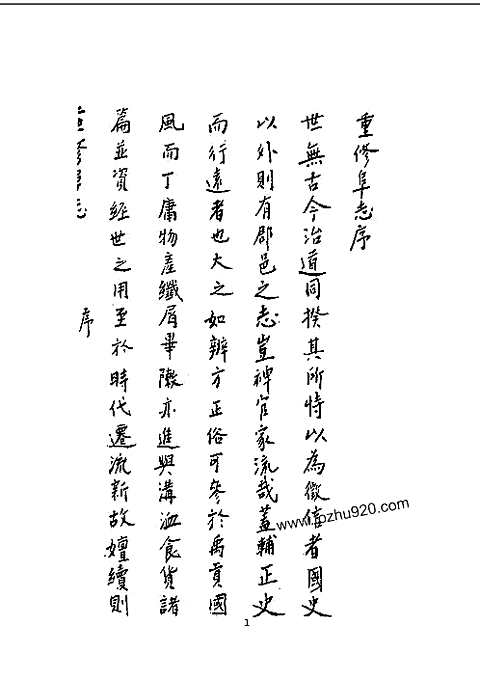 重修阜志序
世無古今治道同揆其所恃以為徵信者國史
以外則有郡邑之志豈稗官家流哉蓋輔正史
而行遠者也大之如辨方正俗可參於禹貢國
風而丁庸物產纖屑畢隊亦進與溝洫食貨諸
篇並資經世之用至於時代遷流新故嬗續則
重修阜志
序
www.fozhu920.com
1